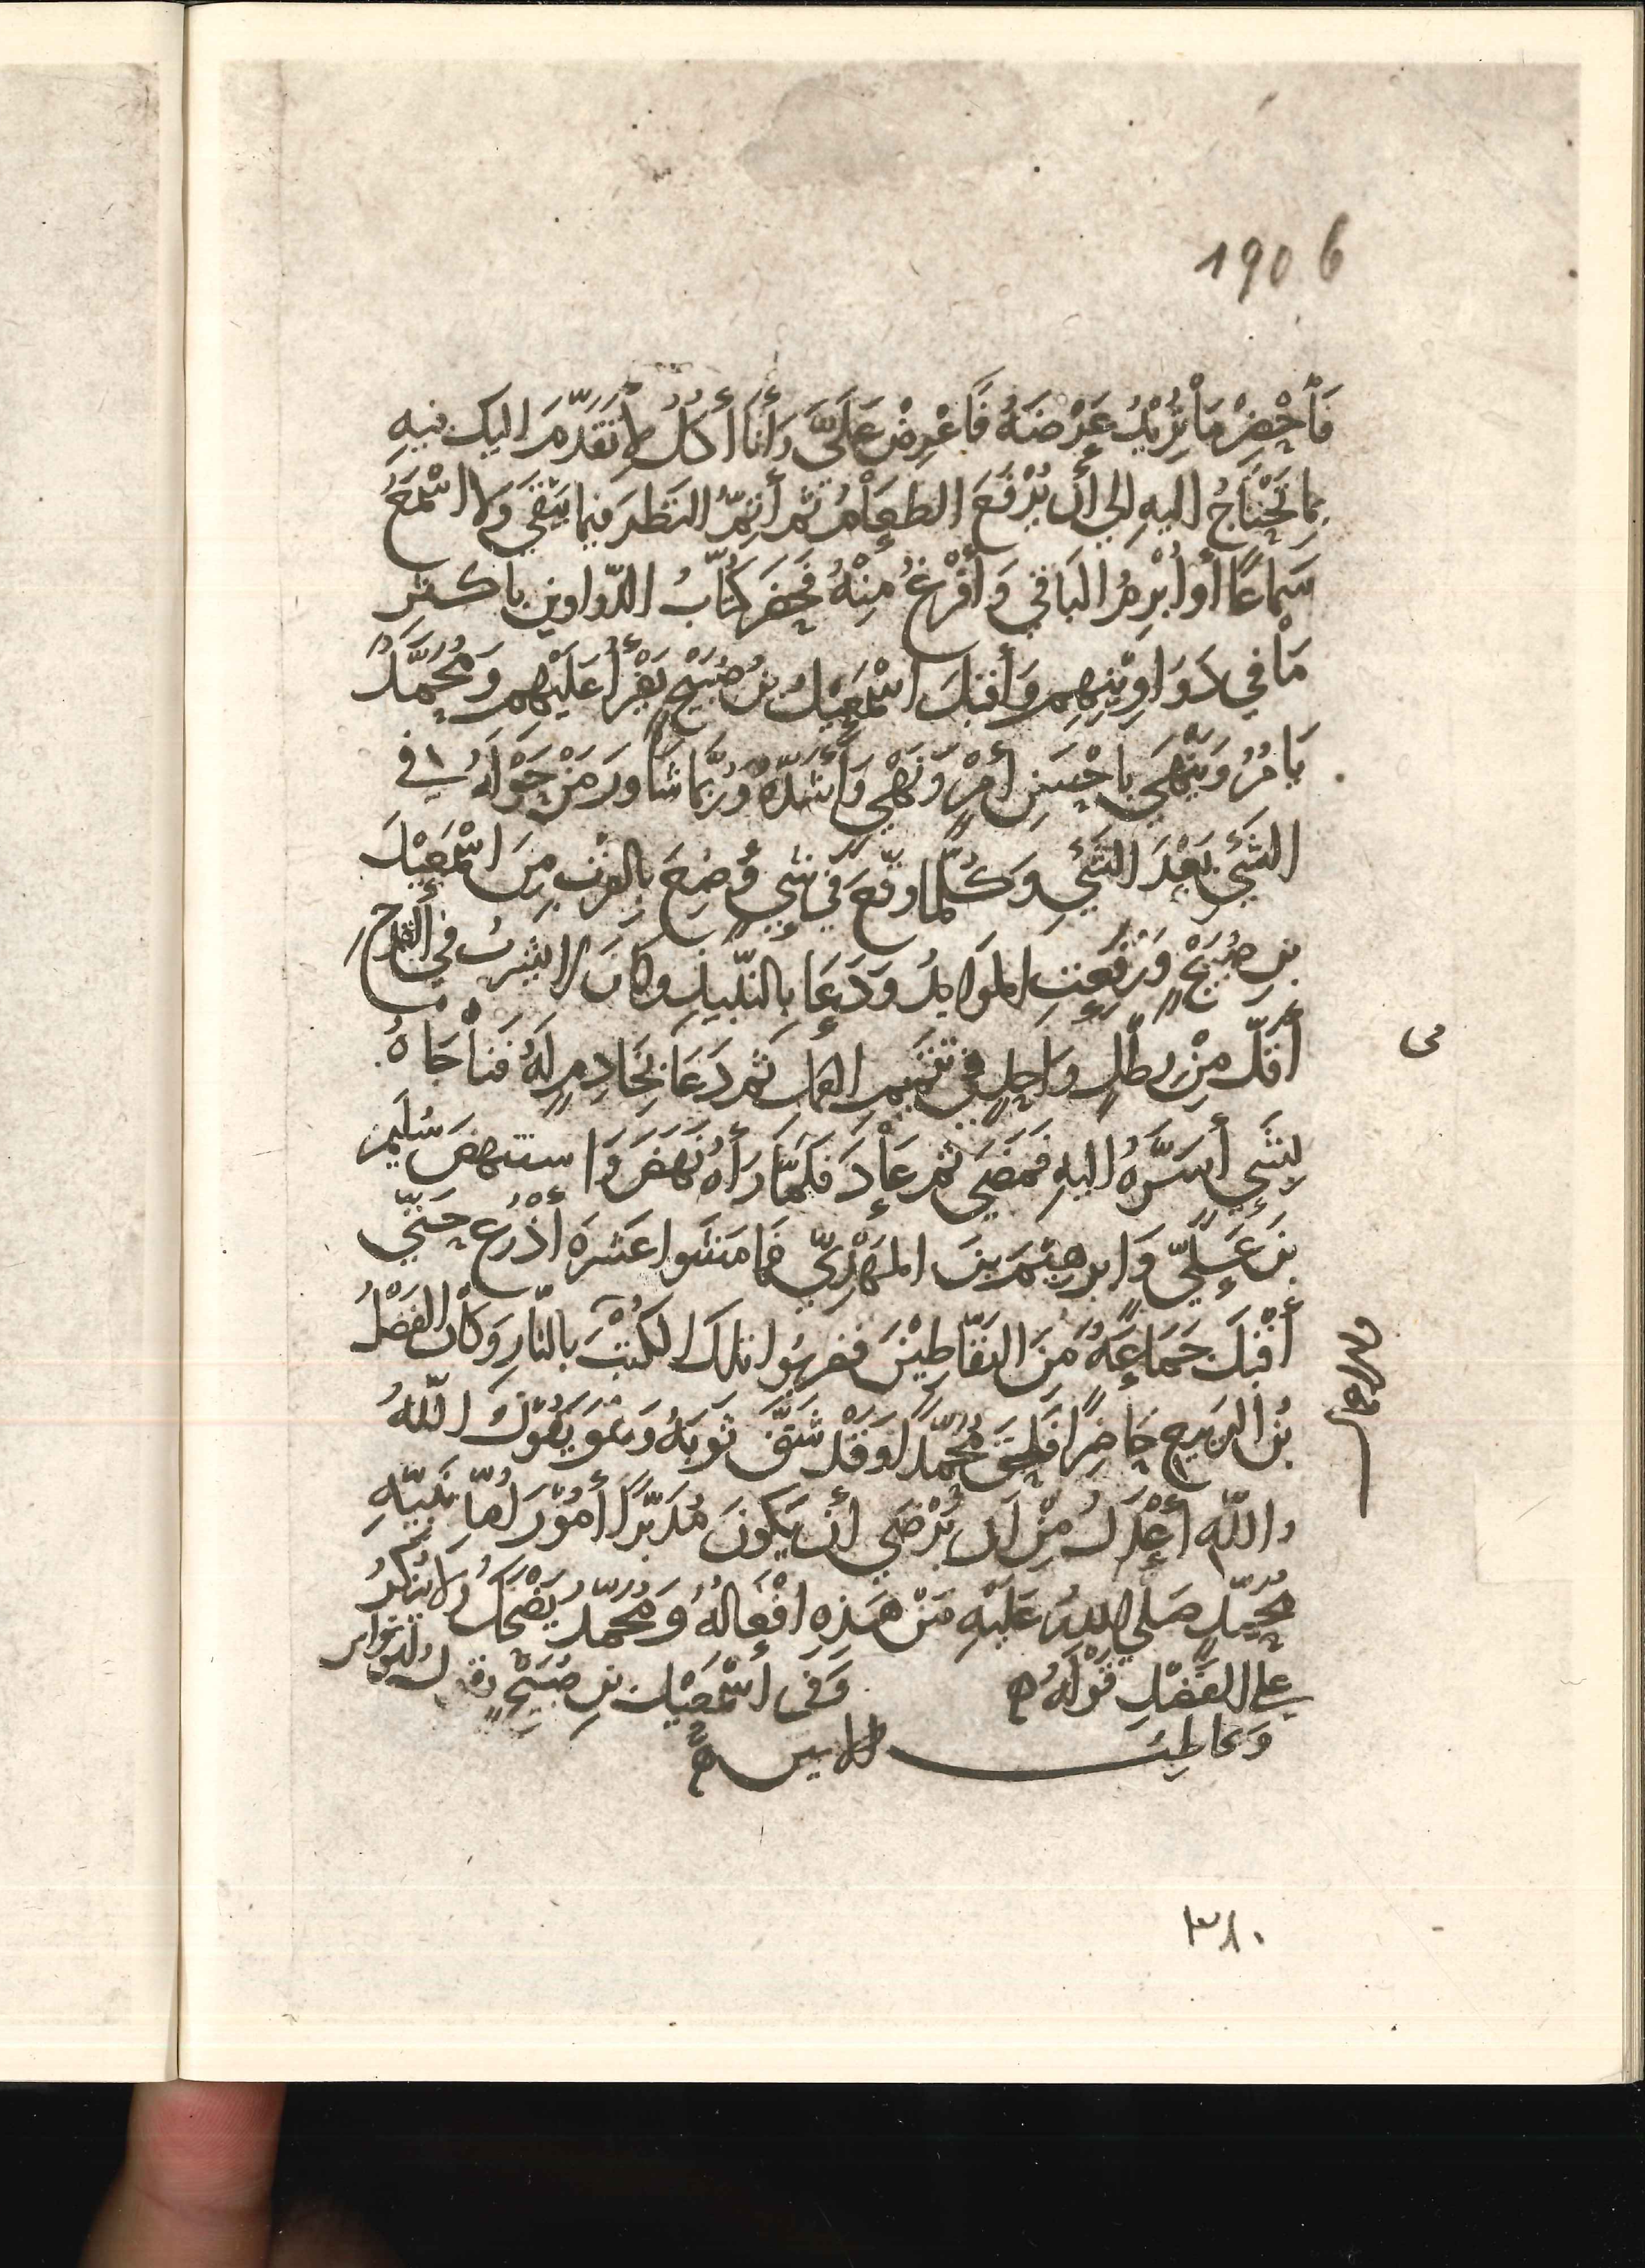 1906
فَأَحْضِرْ مَا تُرِيْدُ عَرْضَهُ فَاعْرِضْ عَلَيَّ وَأَنَا أَكُلُ لِأَتَقَدَّمَ اليك فيهِ
بِمَا تَحْتَاجُ اليهِ الي أَن يُرْفَعَ الطعَامُ ثم أُتِمُّ النَظَرَ فيما يَبْقَي وَلا اسْمَعُ
سَمَاعًا أو أُبْرِمُ البَاقي وَأَفْرُغُ مِنْهُ فَحَضَرَ كُتَّابُ الدّواوين باكثرِ
مَا في دَوَاوِيْنِهِم وَأَقبَلَ اسْمَعِيْلُ بنُ صُبَيْحٍ يَقْرَأُ عَلَيْهِم وَمُحَمَّدٌ
يَامُرُ وَيَنْهَي باحْسَنِ أَمْرٍ وَنَهْيٍ وَأَسَدِّهِ وَرُبَّمَا شَاوَرَ مَنْ حَوْلَهُ في
الشَيْءِ بَعْدَ الشَيْءِ وَكُلَّمَا وَقَّعَ في شَيْءٍ وُضِعَ بِالقُرْبِ مِنَ اسْمَعِيْلَ
بنِ صُبَيْحٍ وَرُفِعَتِ المَوَايِدُ وَدَعَا بِالنَّبيذِ وَكانَ لا يشربُ في القَدَحِ
أَقَلَّ مِنْ رطْلٍ وَاحِدٍ في تَتْمِيمِ العَمَلِ ثم دَعَا بِخَادِمٍ لَهُ فَنَاجَاهُ
بِشَيْءٍ أَسَرَّهُ اليهِ فَمَضَي ثم عَادَ فَلَمَّا رَأَهُ نَهَضَ وَاستنهَضَ سُلَيْمنَ
بنَ عَلِيٍّ وَابرهيمَ بنَ المَهْدِيِّ فَمَا مَشَوا عَشرَةَ أَذْرُعٍ حَتّي
أَقْبَلَ جَمَاعَةٌ مِنَ النَفّاطِيْنَ فَضربُوا تلكَ الكُتُبَ بالنّارِ وَكانَ الفَضْلُ
بْنُ الربيع حَاضِرًا فَلحِقَ مُحَمّدًا وَقَدْ شَقَّ ثَوبَهُ وَهُوَ يَقُوْلُ اللّهُ
واللّهِ أَعْدَلُ مِنْ أَن يَرْضَي أَن يَكونَ مُدَبِّرًا أُمُوْرَ أُمّةِ نَبِيّهِ
مُحَمّدٍ صَلي اللهُ عَلَيْهِ مَنْ هَذِهِ افْعَالُهُ وَمُحَمّدٌ يَضْحَكُ وَلا يُنْكِرُ
علي الفَضْلِ قَوْلَهُ ه وَفي اسْمَعِيْلَ بنِ صُبَيْحٍ
الامين ه
مى
٣٨٠